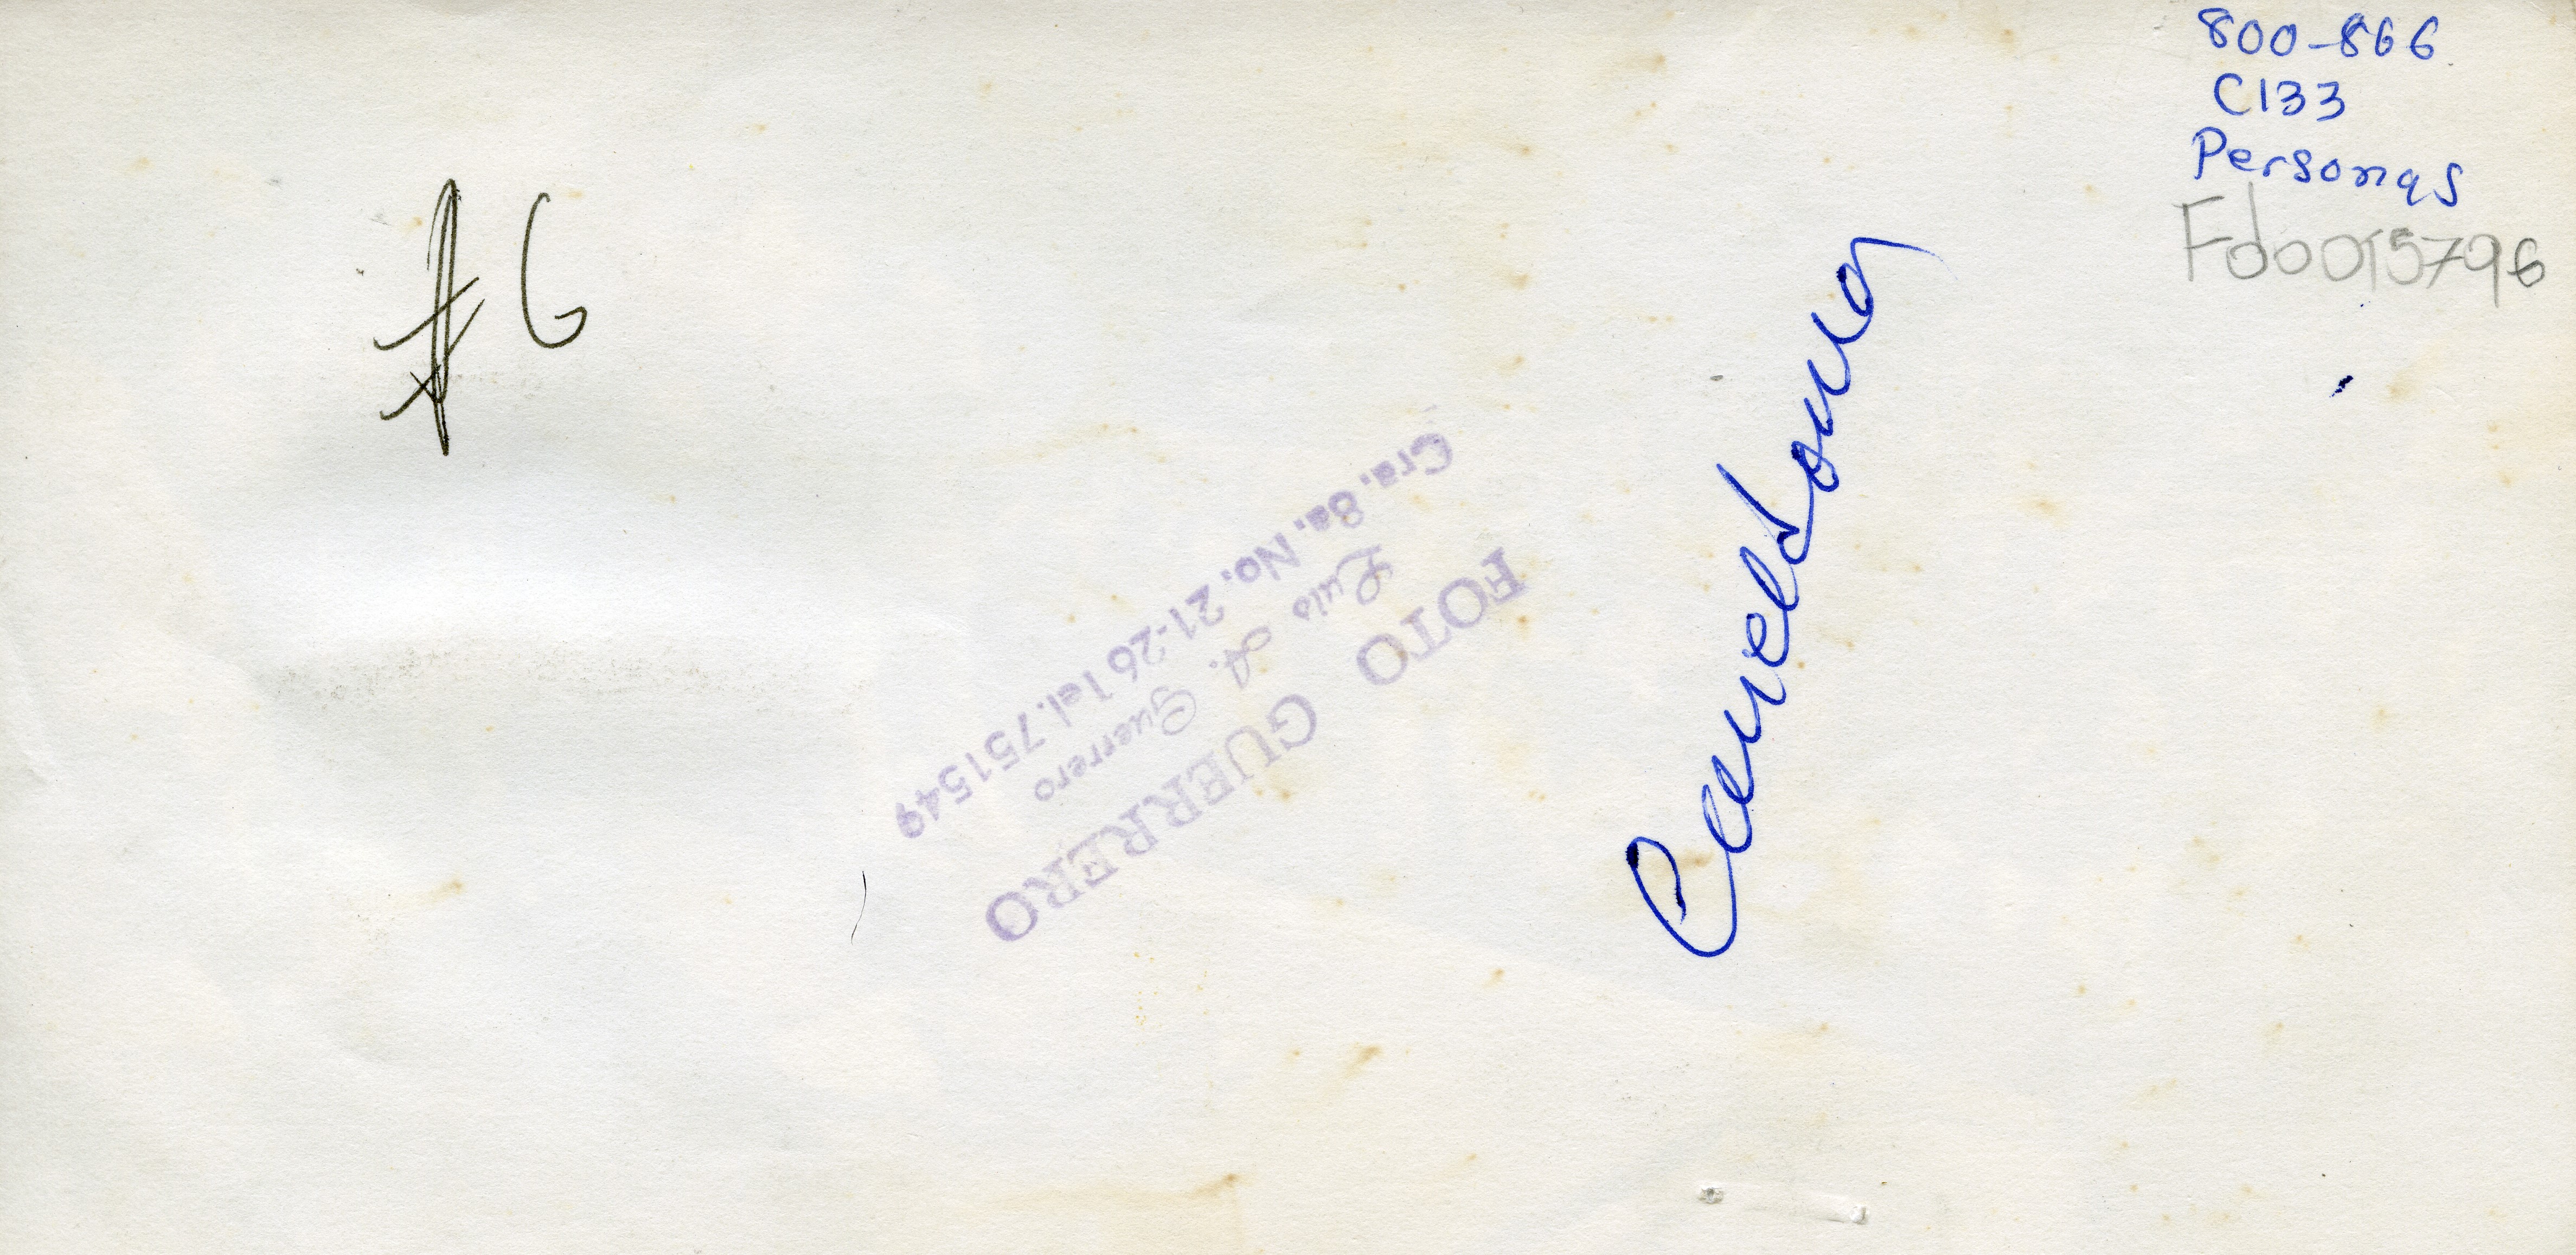 800-866
C133
Personas
Fd0015796
#6
FOTO GUERRERO
Luis A. Guerrero
Cra. 8a. No. 21-26 Tel. 751549